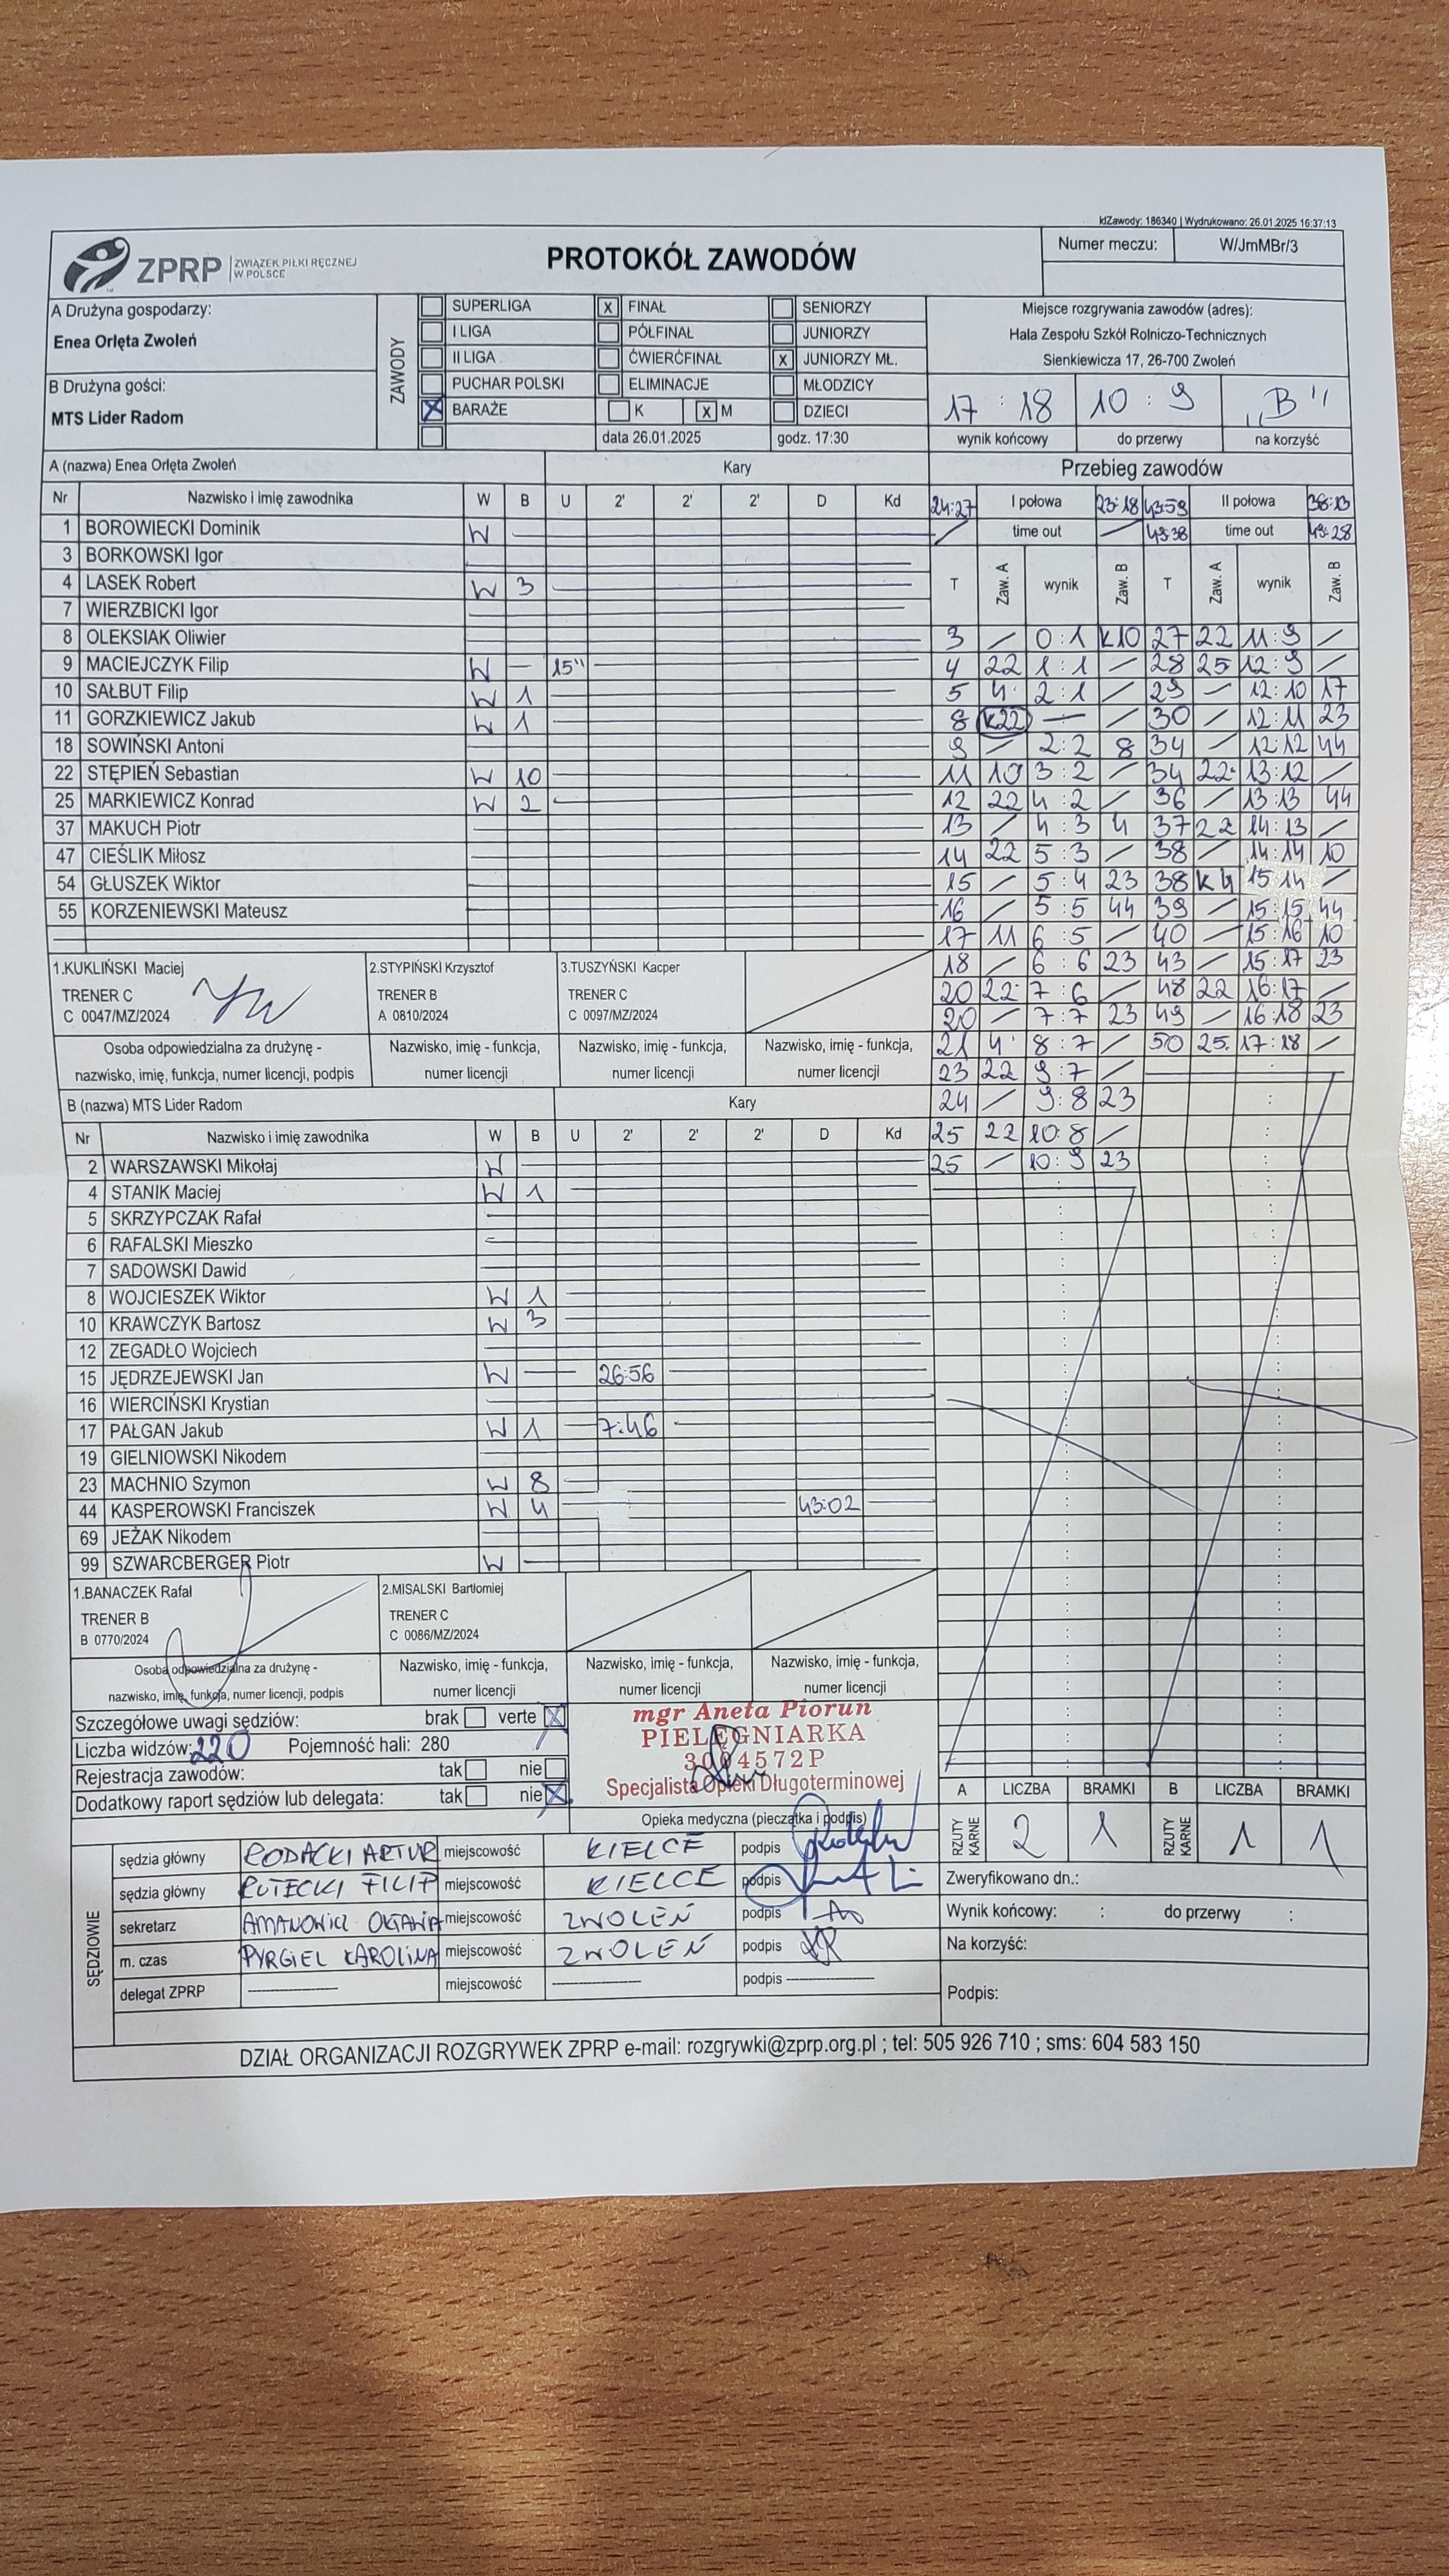 IdZawody: 186340 | Wydrukowano: 26.01.2025 16:37:13
ZPRP ZWIĄZEK PIŁKI RĘCZNEJ W POLSCE
PROTOKÓŁ ZAWODÓW
Numer meczu: W/JmMBr/3
A Drużyna gospodarzy:
Enea Orlęta Zwoleń
B Drużyna gości:
MTS Lider Radom
ZAWODY
SUPERLIGA x FINAŁ SENIORZY
I LIGA PÓŁFINAŁ JUNIORZY
II LIGA ĆWIERĆFINAŁ x JUNIORZY MŁ.
PUCHAR POLSKI ELIMINACJE MŁODZICY
X BARAŻE K x M DZIECI
data 26.01.2025 godz. 17:30
Miejsce rozgrywania zawodów (adres):
Hala Zespołu Szkół Rolniczo-Technicznych
Sienkiewicza 17, 26-700 Zwoleń
17 : 18 10 : 9 „B"
wynik końcowy do przerwy na korzyść
A (nazwa) Enea Orlęta Zwoleń Kary
Nr Nazwisko i imię zawodnika W B U 2' 2' 2' D Kd
1 BOROWIECKI Dominik W
3 BORKOWSKI Igor
4 LASEK Robert W 3
7 WIERZBICKI Igor
8 OLEKSIAK Oliwier
9 MACIEJCZYK Filip W — 15"
10 SAŁBUT Filip W 1
11 GORZKIEWICZ Jakub W 1
18 SOWIŃSKI Antoni
22 STĘPIEŃ Sebastian W 10
25 MARKIEWICZ Konrad W 2
37 MAKUCH Piotr
47 CIEŚLIK Miłosz
54 GŁUSZEK Wiktor
55 KORZENIEWSKI Mateusz
1.KUKLIŃSKI Maciej 2.STYPIŃSKI Krzysztof 3.TUSZYŃSKI Kacper
TRENER C TRENER B TRENER C
C 0047/MZ/2024 A 0810/2024 C 0097/MZ/2024
Osoba odpowiedzialna za drużynę - Nazwisko, imię - funkcja, Nazwisko, imię - funkcja, Nazwisko, imię - funkcja,
nazwisko, imię, funkcja, numer licencji, podpis numer licencji numer licencji numer licencji
B (nazwa) MTS Lider Radom Kary
Nr Nazwisko i imię zawodnika W B U 2' 2' 2' D Kd
2 WARSZAWSKI Mikołaj W
4 STANIK Maciej W 1
5 SKRZYPCZAK Rafał
6 RAFALSKI Mieszko
7 SADOWSKI Dawid
8 WOJCIESZEK Wiktor W 1
10 KRAWCZYK Bartosz W 3
12 ZEGADŁO Wojciech
15 JĘDRZEJEWSKI Jan W — 26:56
16 WIERCIŃSKI Krystian
17 PAŁGAN Jakub W 1 — 7:46
19 GIELNIOWSKI Nikodem
23 MACHNIO Szymon W 8
44 KASPEROWSKI Franciszek W 4 43:02
69 JEŻAK Nikodem
99 SZWARCBERGER Piotr W
1.BANACZEK Rafał 2.MISALSKI Bartłomiej
TRENER B TRENER C
B 0770/2024 C 0086/MZ/2024
Osoba odpowiedzialna za drużynę - Nazwisko, imię - funkcja, Nazwisko, imię - funkcja, Nazwisko, imię - funkcja,
nazwisko, imię, funkcja, numer licencji, podpis numer licencji numer licencji numer licencji
Przebieg zawodów
24:27 I połowa 23:18 43:59 II połowa 38:13
/ time out / 43:38 time out 49:28
T Zaw. A wynik Zaw. B T Zaw. A wynik Zaw. B
3 / 0:1 K10 27 22 11:9 /
4 22 1:1 / 28 25 12:9 /
5 4 2:1 / 29 — 12:10 17
8 K22 — / 30 / 12:11 23
9 / 2:2 8 34 / 12:12 44
11 10 3:2 / 34 22 13:12 /
12 22 4:2 / 36 / 13:13 44
13 / 4:3 4 37 22 14:13 /
14 22 5:3 / 38 / 14:14 10
15 / 5:4 23 38 K4 15 14 /
16 / 5:5 44 39 / 15:15 44
17 11 6:5 / 40 / 15:16 10
18 / 6:6 23 43 / 15:17 23
20 22 7:6 / 48 22 16:17 /
20 / 7:7 23 49 / 16:18 23
21 4 8:7 / 50 25 17:18 /
23 22 9:7 /
24 / 9:8 23
25 22 10:8 /
25 / 10:9 23
Szczegółowe uwagi sędziów: brak verte X
Liczba widzów: 220 Pojemność hali: 280
Rejestracja zawodów: tak nie
Dodatkowy raport sędziów lub delegata: tak nie X
mgr Aneta Piorun
PIELĘGNIARKA
3004572P
Specjalista Opieki Długoterminowej
Opieka medyczna (pieczątka i podpis)
A LICZBA BRAMKI B LICZBA BRAMKI
RZUTY KARNE 2 1 RZUTY KARNE 1 1
SĘDZIOWIE
sędzia główny RODACKI ARTUR miejscowość KIELCE podpis
sędzia główny RUTECKI FILIP miejscowość KIELCE podpis
sekretarz AMANOWICZ OKTAWIA miejscowość ZWOLEŃ podpis
m. czas PYRGIEL KAROLINA miejscowość ZWOLEŃ podpis
delegat ZPRP miejscowość podpis
Zweryfikowano dn.:
Wynik końcowy: : do przerwy :
Na korzyść:
Podpis:
DZIAŁ ORGANIZACJI ROZGRYWEK ZPRP e-mail: rozgrywki@zprp.org.pl ; tel: 505 926 710 ; sms: 604 583 150